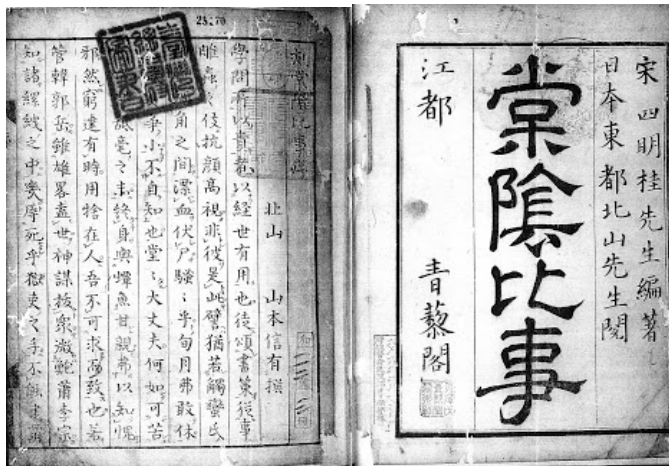 宋 四明桂先生編著
日本東都北山先生閱
棠陰比事
江都 青藜閣
刻棠陰比事序
北山 山本信有撰
學問所以貴者以経世有用也徒頌書策従事
雕蟲之伎抗顔高視非彼是此譬猶若觸蠻氏
角之間漂血伏尸騒〻乎旬月弗敢休
爭小不自知也堂〻大丈夫何如可苦
毫之末終身與蟫魚甘親弗以知愧
邪然窮達有時用捨在人吾不可求而致也若
管韓郭岳雖雄畧蓋世神謀抜衆微鮑蕭李宗
知諸縲絏之中燹厚死乎獄吏之手不無